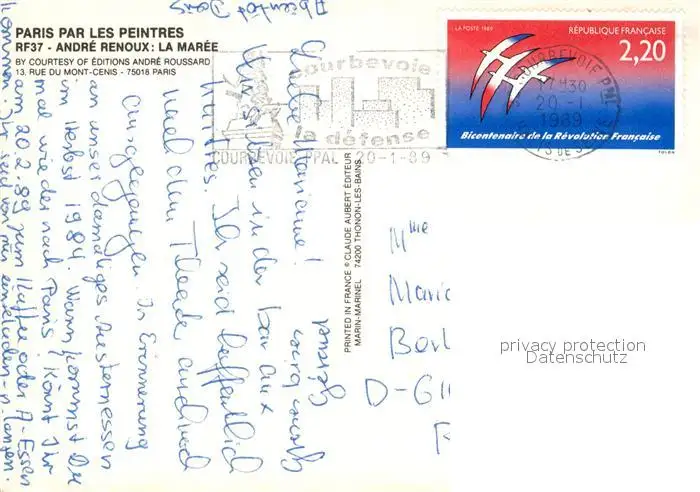 PARIS PAR LES PEINTRES
RF37 - ANDRÉ RENOUX: LA MARÉE
BY COURTESY OF ÉDITIONS ANDRÉ ROUSSARD
13, RUE DU MONT-CENIS - 75018 PARIS
courbevoie
la défense
COURBEVOIE PPAL 20-1-89
LA POSTE 1989
RÉPUBLIQUE FRANÇAISE
2,20
Bicentenaire de la Révolution Française
COURBEVOIE PPAL
17H30
20-1
1989
PRINTED IN FRANCE © CLAUDE AUBERT ÉDITEUR
MARIN-MARINEL 74200 THONON-LES-BAINS
Liebe Marianne!
Wir sitzen in der Bar aux
Huîtres. Ihr seid hoffentlich
nach dem Theater auch noch
gegangen. In Erinnerung
an unser damaliges Austernessen
im Herbst 1984. Wann kommst Du
mal wieder nach Paris? Könnt Ihr
am 20.2.89 zum Kaffee oder A-Essen
kommen? Ihr seid von mir eingeladen
A bientôt
Mme
D-6
privacy protection
Datenschutz